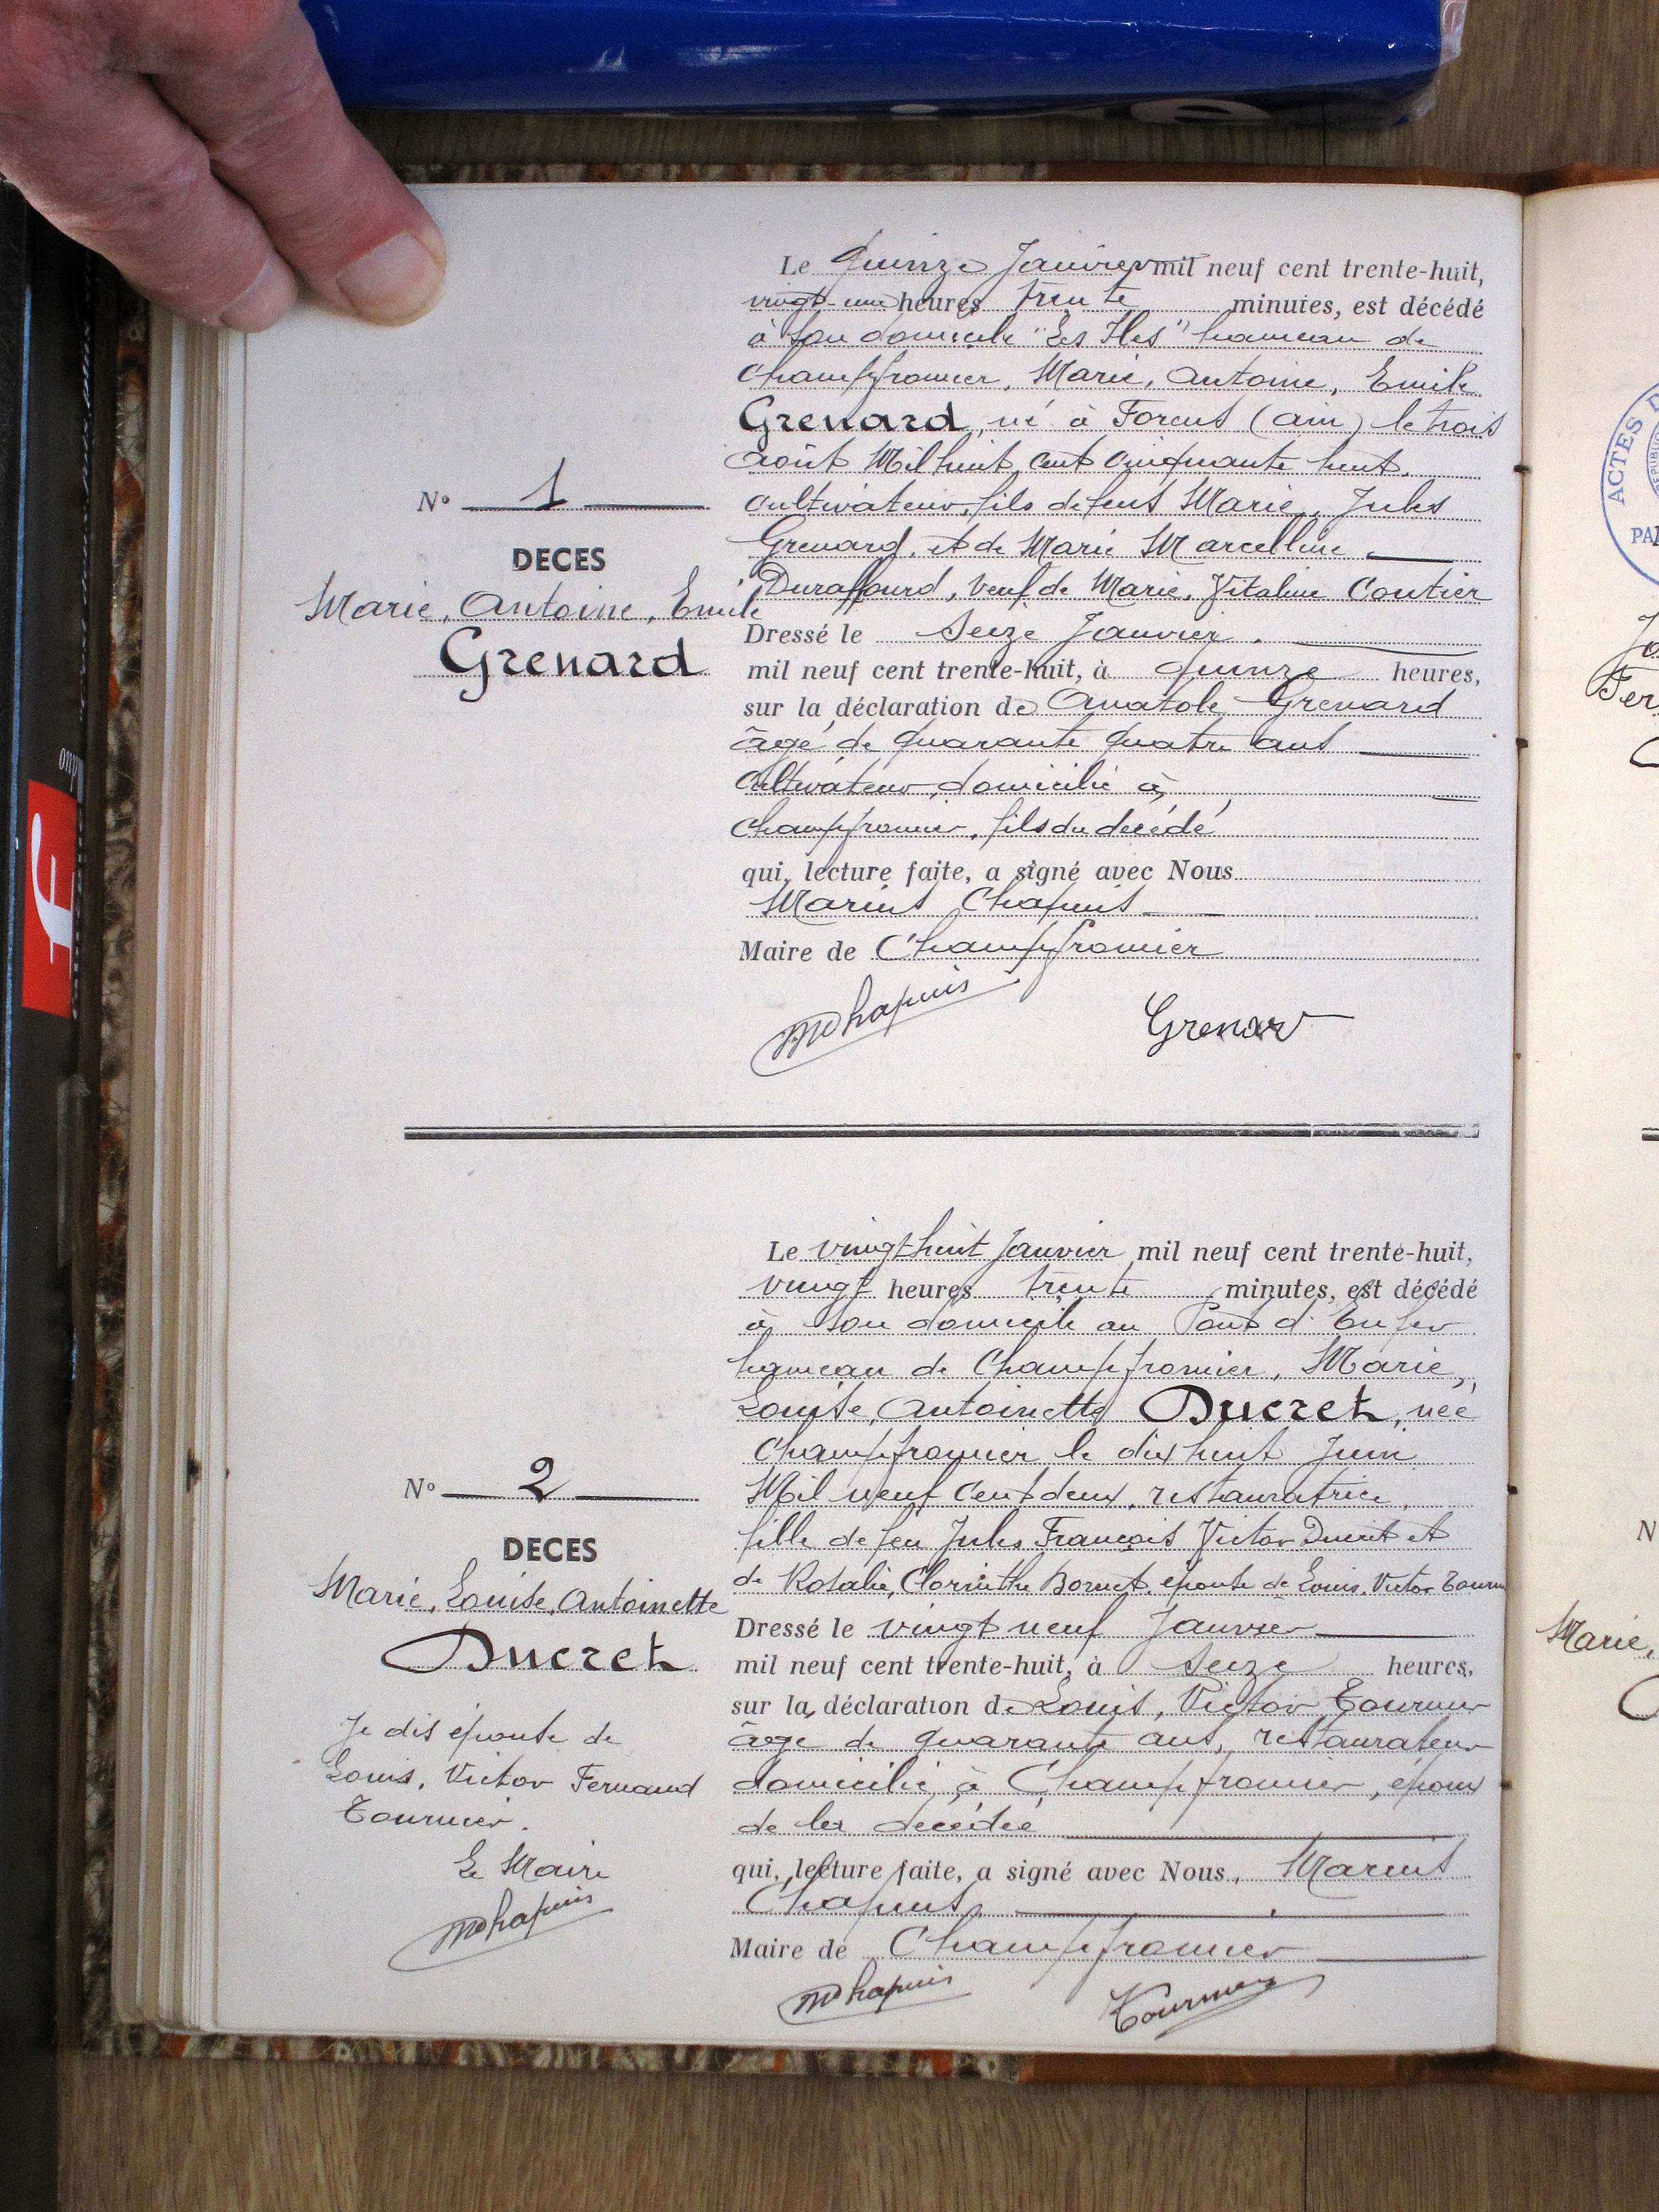 Le quinze Janvier mil neuf cent trente-huit,
vingt-une heures trente minutes, est décédé
à son domicile "Les Iles" hameau de
Champfromier, Marie, Antoine, Emile
Grenard, né à Forens (ain) le trois
août Mil huit cent cinquante huit,
cultivateur, fils de feus Marie, Jules
Grenard, et de Marie Marcelline
Duraffourd, veuf de Marie, Vitaline Coutier
Dressé le Seize Janvier.
mil neuf cent trente-huit, à quinze heures,
sur la déclaration de Anatole Grenard
âgé de quarante quatre ans
cultivateur, domicilié à
Champfromier, fils du decédé
qui, lecture faite, a signé avec Nous
Marius Chapuis
Maire de Champfromier
MChapuis Grenard
N° 1
DECES
Marie, Antoine, Emile
Grenard
Le vingt huit Janvier mil neuf cent trente-huit,
vingt heures trente minutes, est décédé
à son domicile au Pont d'Enfer
hameau de Champfromier, Marie,
Louise, Antoinette Ducret, née
Champfromier le dix huit Juin
Mil neuf cent deux, restauratrice,
fille de feu Jules François Victor Ducret et
de Rosalie, Clorinthe Bornet, épouse de Louis, Victor Tournier
Dressé le vingt neuf Janvier
mil neuf cent trente-huit, à Seize heures,
sur la déclaration de Louis, Victor Tournier
âgé de quarante ans, restaurateur
domicilié à Champfromier, époux
de la décédée
qui, lecture faite, a signé avec Nous, Marius
Chapuis,
Maire de Champfromier
MChapuis Tournier
N° 2
DECES
Marie, Louise, Antoinette
Ducret
Je dis épouse de
Louis, Victor Fernand
Tournier.
Le Maire
MChapuis
ACTES D
PA
N
Marie,